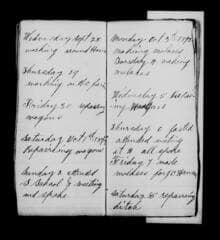 Wednesday Sept 28
working around Home
Thursday 29
working on the farm
Friday 30 repairing
wagons
Saturday Oct 1st 189
Repairing wagon
Sunday 2 attended
S. School & meeting
and spoke
Monday Oct 3rd 189
making molases
Tuesday 4 making
molases
Wednesday 5
Thursday 6 fasted
attended meeting
at all spoke
Friday 7 made
molases for
Saturday 8 repairing
ditch